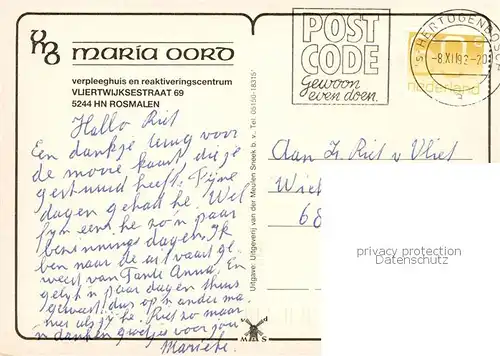 MARIA OORD
verpleeghuis en reaktiveringscentrum
VLIERTWIJKSESTRAAT 69
5244 HN ROSMALEN
POST
CODE
Gewoon
even doen.
'S-HERTOGENBOSCH
-8.XII.19
nederland
Hallo Riet
Een dankje terug voor
de mooie kaart die je
gestuurd heeft. Fijne
dagen gehad he. Wel
fijn een he zo'n paar
bezinnings dagen. Ik
ben naar de uitvaart ge-
weest van Tante Anna. En
gelijk 'n paar dagen thuis
geweest dus op 'n ander ma-
nier als jij he. Riet zo maar
'n danken groetjes voor jou
Marietje.
Uitgave: Uitgeverij van der Meulen Sneek b.v. Tel. 05150-18315
Aan Z. Riet v Vliet
68
privacy protection
Datenschutz
v d
M S